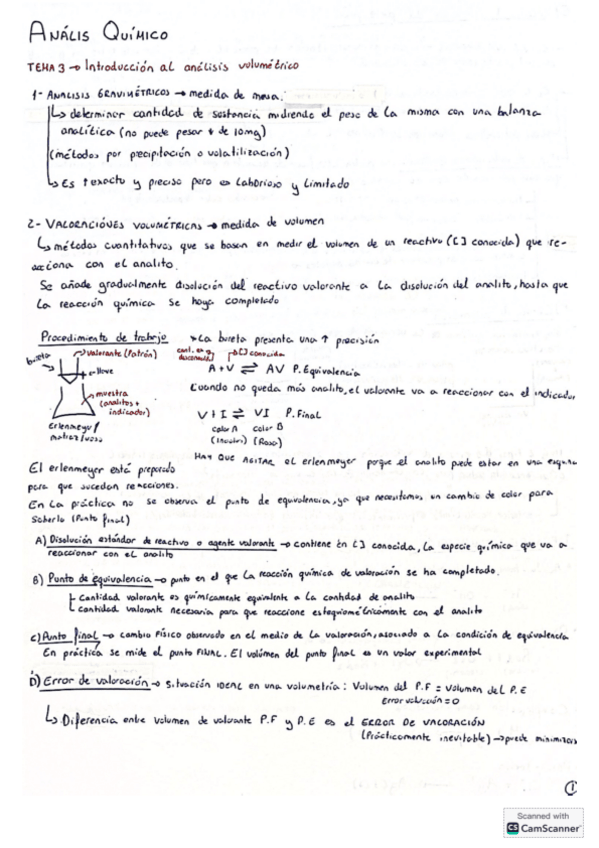 ANÁLIS QUÍMICO
TEMA 3 → Introducción al análisis volumétrico
1- ANALISIS GRAVIMÉTRICOS → medida de masa.
↳ determinar cantidad de sustancia midiendo el peso de la misma con una balanza
analítica (no puede pesar + de 10mg)
(métodos por precipitación o volatilización)
↳ Es ↑ exacto y preciso pero es laborioso y limitado
2- VALORACIÓNES VOLUMÉTRICAS → medida de volumen
↳ métodos cuantitativos que se basan en medir el volumen de un reactivo ([] conocida) que re-
acciona con el analito.
Se añade gradualmente disolución del reactivo valorante a la disolución del analito, hasta que
la reacción química se haya completado
Procedimiento de trabajo
* La bureta presenta una ↑ precisión
bureta
valorante (Patrón)
llave
muestra
(analitos +
indicador)
Erlenmeyer/
matraz/vaso
[] conocida
A + V ⇌ AV P. Equivalencia
Cuando no queda más analito, el valorante va a reaccionar con el indicador
V + I ⇌ VI P. Final
color A color B
(Incoloro) (Rosa)
HAY QUE AGITAR el erlenmeyer porque el analito puede estar en una esquina
El erlenmeyer está preparado
para que sucedan reacciones.
En la práctica no se observa el punto de equivalencia, ya que necesitamos un cambio de color para
saberlo (Punto final)
A) Disolución estándar de reactivo o agente valorante → contiene en [] conocida, la especie química que va a
reaccionar con el analito
B) Punto de equivalencia → punto en el que la reacción química de valoración se ha completado.
Cantidad valorante es químicamente equivalente a la cantidad de analito
cantidad valorante necesaria para que reaccione estequiométricamente con el analito
C) Punto final → cambio FÍSICO observado en el medio de la valoración, asociado a la condición de equivalencia
En práctica se mide el punto FINAL. El volúmen del punto final es un valor experimental
D) Error de valoración → Situación IDEAL en una volumetría: Volumen del P.F = Volumen del P.E
Error valoración = 0
↳ Diferencia entre volumen de valorante P.F y P.E es el ERROR DE VALORACIÓN
(Prácticamente inevitable) → puede minimizars
1
Scanned with
CS CamScanner